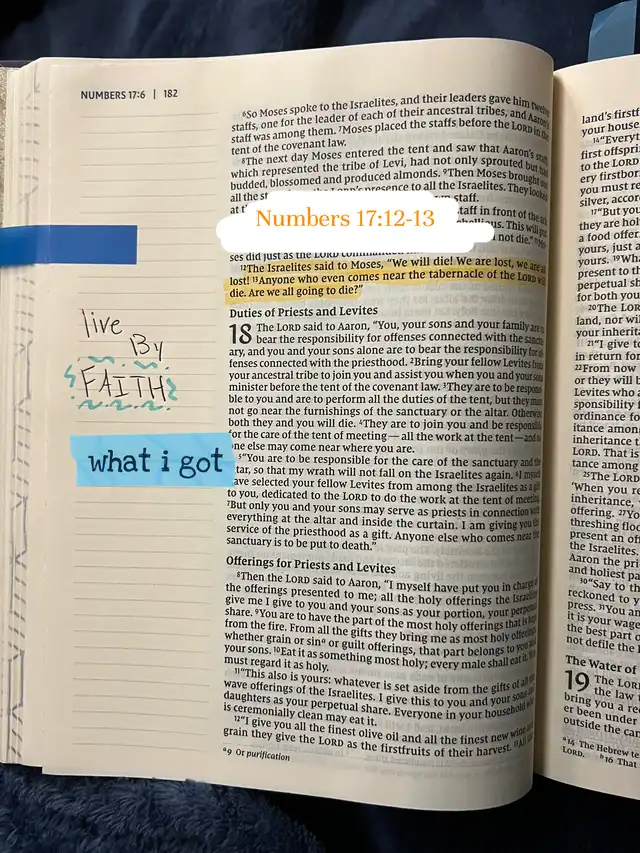 NUMBERS 17:6 | 182
⁶So Moses spoke to the Israelites, and their leaders gave him twelve
staffs, one for the leader of each of their ancestral tribes, and Aaron's
staff was among them. ⁷Moses placed the staffs before the LORD in the
tent of the covenant law.
⁸The next day Moses entered the tent and saw that Aaron's staff,
which represented the tribe of Levi, had not only sprouted but had
budded, blossomed and produced almonds. ⁹Then Moses brought out
all the presence to all the Israelites. They looked
at staff.
staff in front of the ark
This will
not die."
Numbers 17:12-13
ses did just as the LORD commanded
¹²The Israelites said to Moses, "We will die! We are lost, we are all
lost! ¹³Anyone who even comes near the tabernacle of the LORD will
die. Are we all going to die?"
live
By
FAITH
what i got
Duties of Priests and Levites
18 The LORD said to Aaron, "You, your sons and your family are to
bear the responsibility for offenses connected with the sanctu-
ary, and you and your sons alone are to bear the responsibility for of-
fenses connected with the priesthood. ²Bring your fellow Levites from
your ancestral tribe to join you and assist you when you and your sons
minister before the tent of the covenant law. ³They are to be responsi-
ble to you and are to perform all the duties of the tent, but they must
not go near the furnishings of the sanctuary or the altar. Otherwise
both they and you will die. ⁴They are to join you and be responsible
for the care of the tent of meeting — all the work at the tent — and no
one else may come near where you are.
⁵"You are to be responsible for the care of the sanctuary and the
altar, so that my wrath will not fall on the Israelites again. ⁶I myself
have selected your fellow Levites from among the Israelites as a gift
to you, dedicated to the LORD to do the work at the tent of meeting.
⁷But only you and your sons may serve as priests in connection with
everything at the altar and inside the curtain. I am giving you the
service of the priesthood as a gift. Anyone else who comes near the
sanctuary is to be put to death."
Offerings for Priests and Levites
⁸Then the LORD said to Aaron, "I myself have put you in charge of
the offerings presented to me; all the holy offerings the Israelites
give me I give to you and your sons as your portion, your perpetual
share. ⁹You are to have the part of the most holy offerings that is kept
from the fire. From all the gifts they bring me as most holy offerings,
whether grain or sinᵃ or guilt offerings, that part belongs to you and
your sons. ¹⁰Eat it as something most holy; every male shall eat it. You
must regard it as holy.
¹¹"This also is yours: whatever is set aside from the gifts of all the
wave offerings of the Israelites. I give this to you and your sons and
daughters as your perpetual share. Everyone in your household who
is ceremonially clean may eat it.
¹²"I give you all the finest olive oil and all the finest new wine and
grain they give the LORD as the firstfruits of their harvest. ¹³All the
ᵃ9 Or purification
land's firstf
your house
¹⁴"Everyt
first offspri
to the LORD
ery firstbor
you must re
silver, accor
¹⁷"But you
they are hol
a food offer
yours, just a
yours. ¹⁹Wha
present to th
perpetual sh
for both you
²⁰The LOR
land, nor wil
your inherit
²¹"I give to
in return for
²²From now
or they will b
Levites who a
sponsibility f
ordinance fo
itance among
inheritance t
LORD. That is
tance among
²⁵The LORD
'When you r
inheritance,
offering. ²⁷Yo
threshing floo
present an off
the Israelites.
Aaron the pri
and holiest pa
³⁰"Say to th
reckoned to y
press. ³¹You an
it is your wage
the best part o
not defile the
The Water of
19 The LORD
the law t
bring you a re
er been under
outside the can
ᵃ14 The Hebrew te
LORD. ᵇ16 That